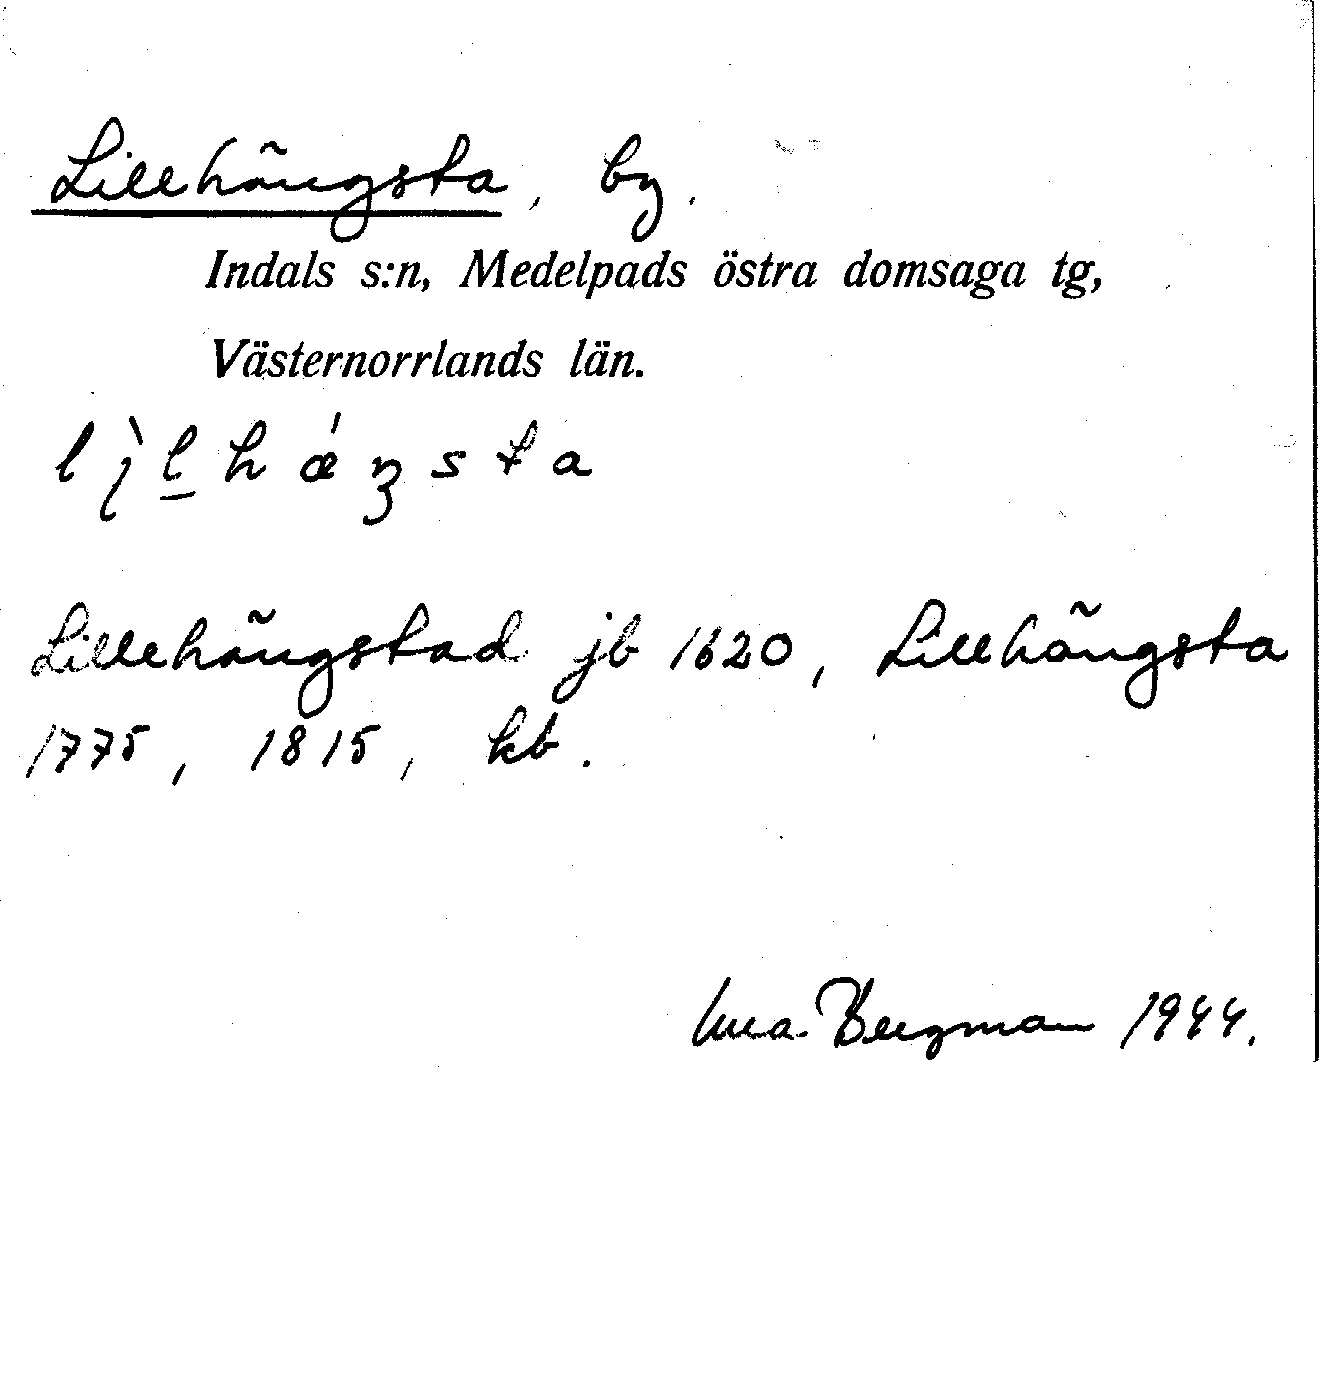 Lillhängsta, by.
Indals s:n, Medelpads östra domsaga tg,
Västernorrlands län.
Lillehängstad jb 1620, Lillhängsta
1775, 1815, kb.
Bergman 1944.